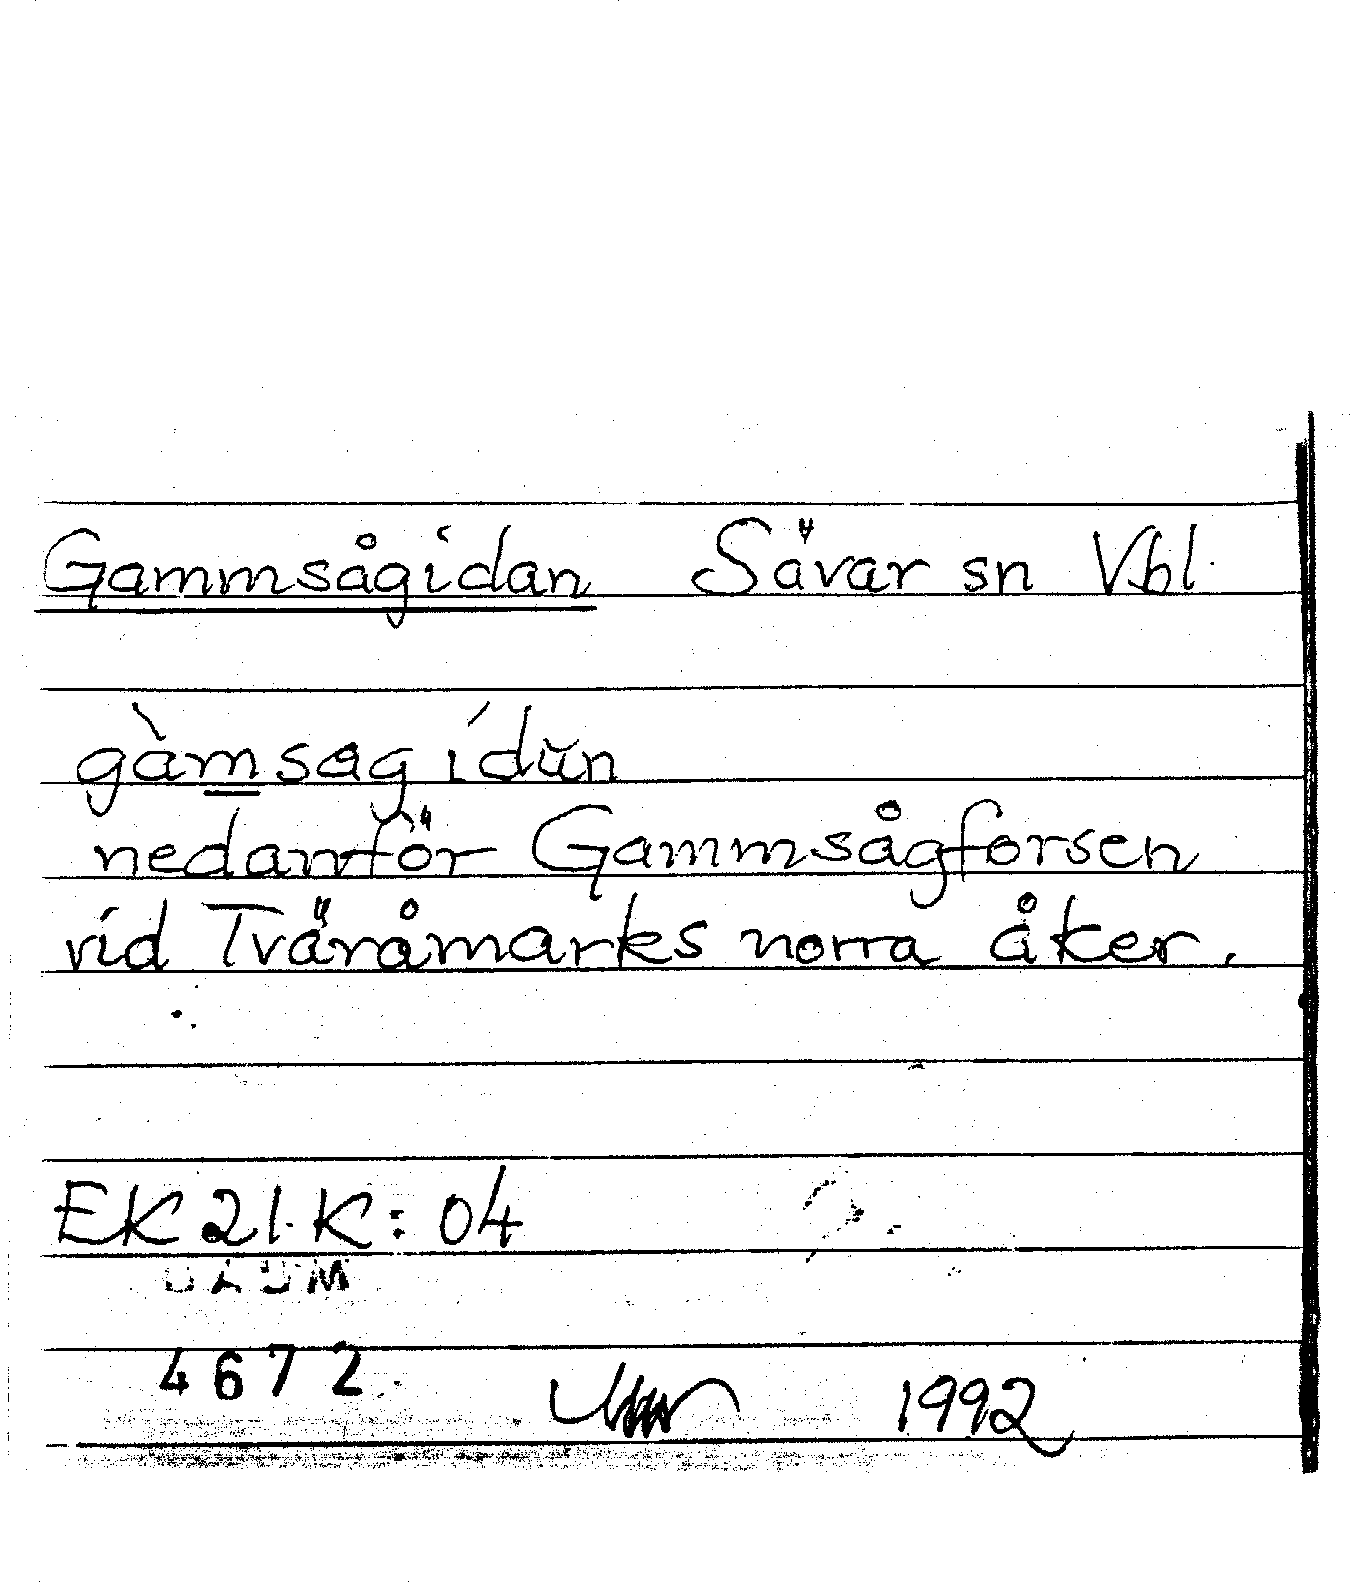 Gammsågidan Sävar sn Vbl.
gàmsag ídün
nedanför Gammsågforsen
vid Tväråmarks norra åker.
EK 21.K: 04
DAUM
4672
1992